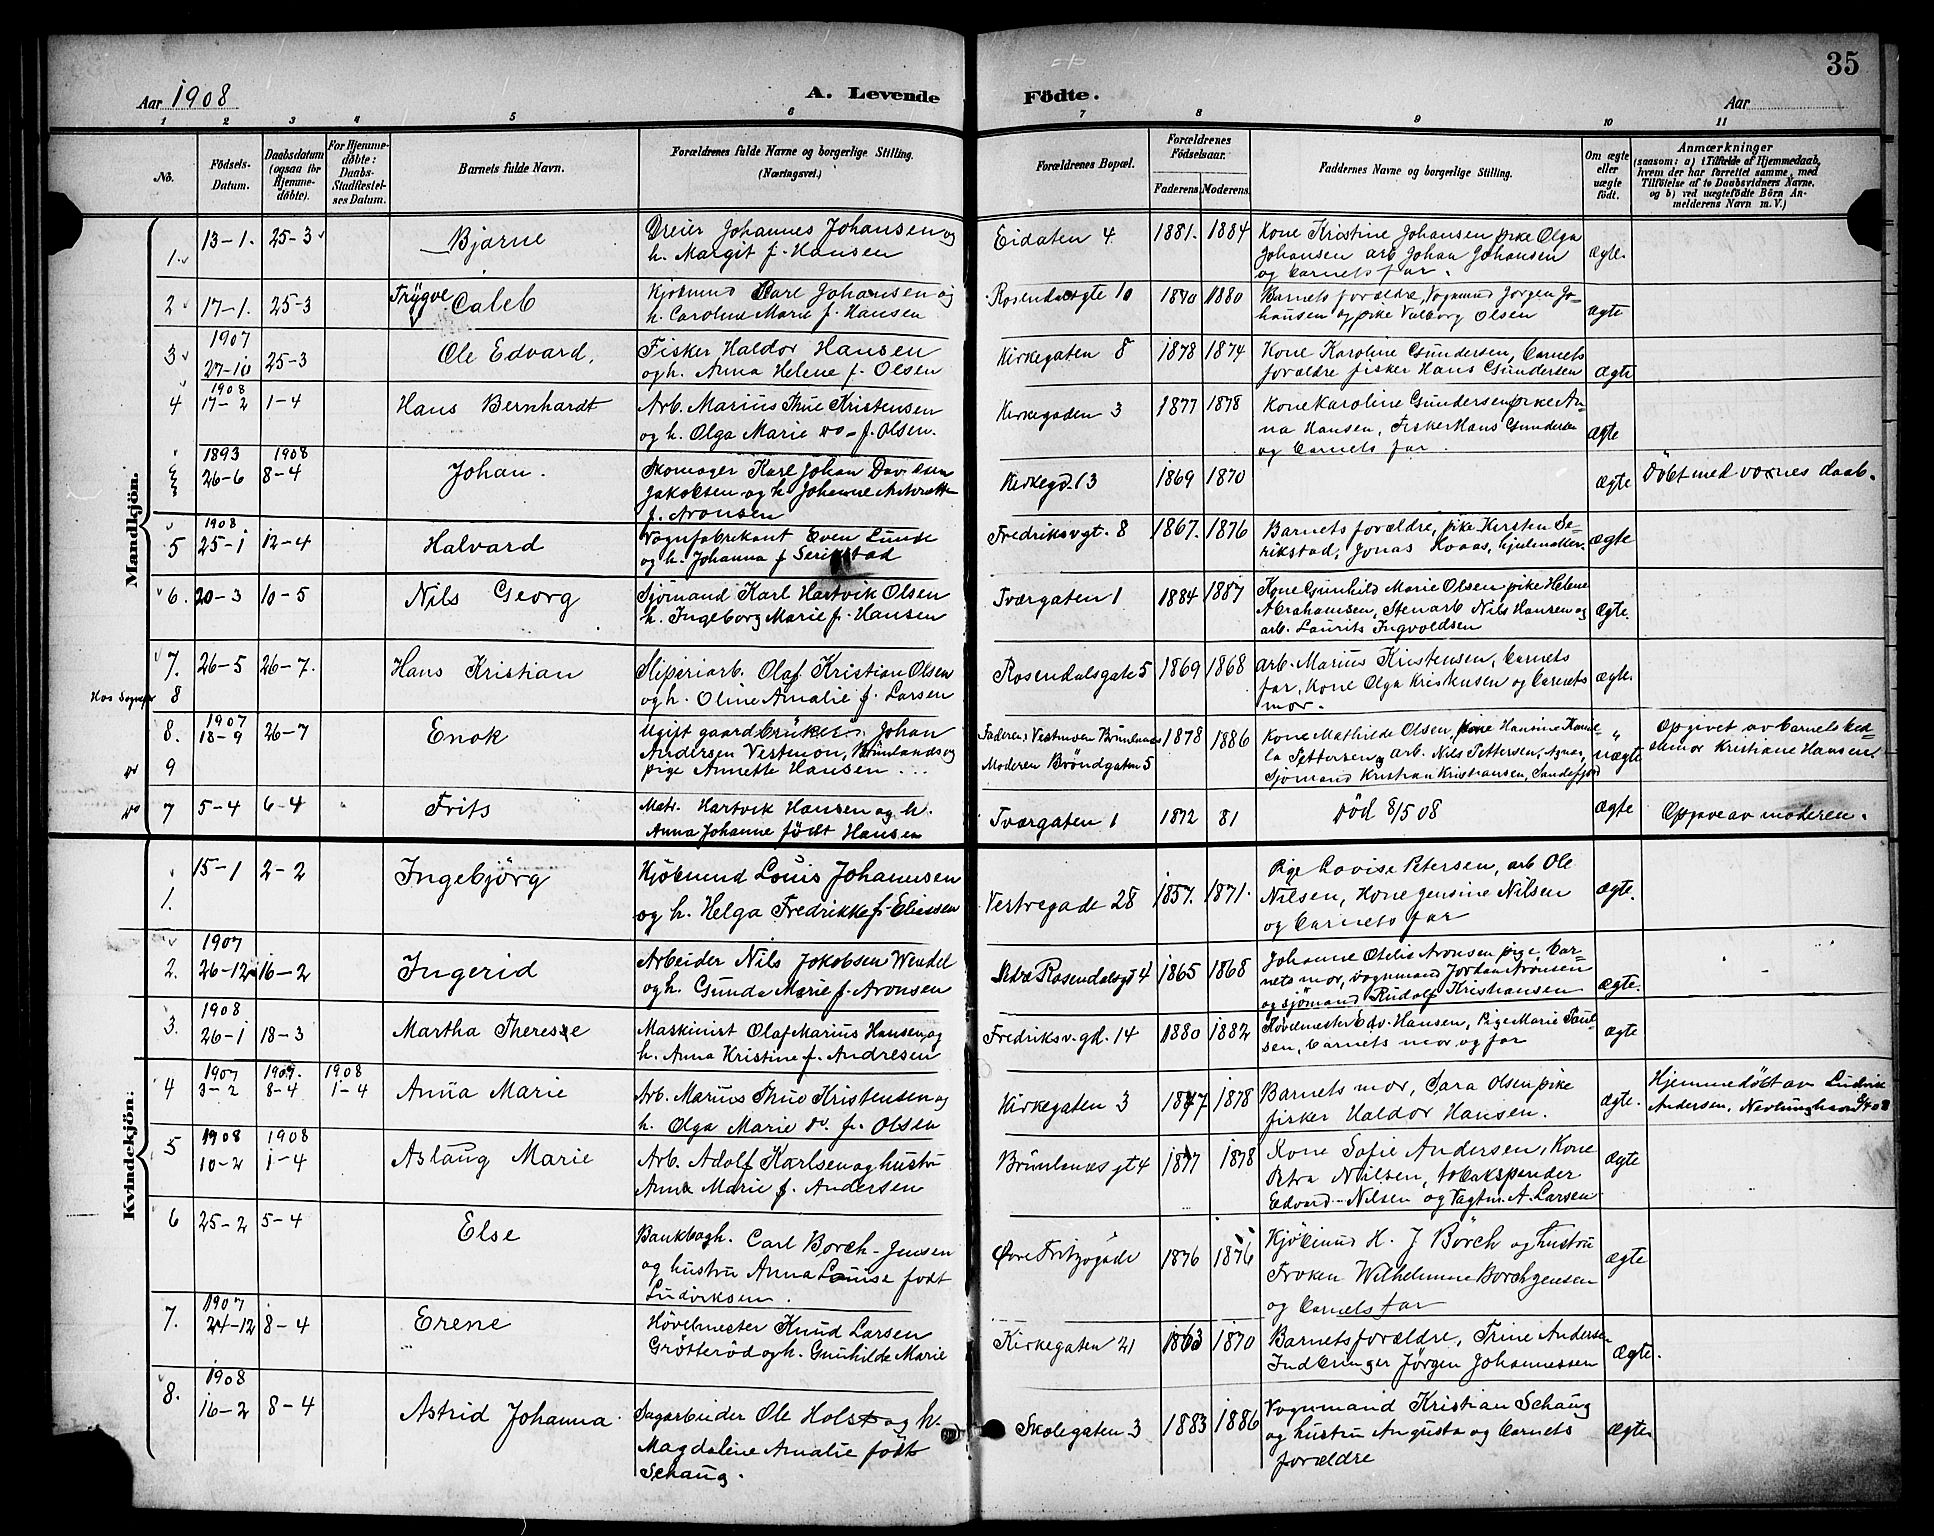 35
Aar 1908
A. Levende
Födte.
Aar
1 2 3 4 5 6 7 8 9 10 11
No.
Födsels-
Datum.
Daabsdatum
(ogsaa for
Hjemme-
döbte).
For Hjemme-
döbte:
Daabs-
Stadfæstel-
ses Datum.
Barnets fulde Navn.
Forældrenes fulde Navne og borgerlige Stilling.
(Næringsvei.)
Forældrenes Bopæl.
Forældrenes
Födselsaar.
Faderens. Moderens.
Faddernes Navne og borgerlige Stilling.
Om ægte
eller
uægte
födt.
Anmærkninger
(saasom: a) i Tilfælde af Hjemmedaab,
hvem der har forrettet samme, med
Tilföielse af to Daabsvidners Navne,
og b) ved uægtefödte Börn An-
melderens Navn m. V.)
Mandkjön.
1. 13-1. 25-3 Bjarne
Dreier Johannes Johansen og
h. Margit f. Hansen
Eidaten 4 1881. 1884
Kone Kristine Johansen pike Olga
Johansen arb Johan Johansen
og barnets far.
ægte.
2 17-1. 25-3 Trygve Caleb
Kjøbmand Carl Johansen og
h. Caroline Marie f. Hansen
Rosendalsgte 10 1870 1880
Barnets forældre, Vognmand Jörgen Jo-
hansen og pike Valborg Olsen
ægte
3 1907
27-10 25-3 Ole Edvard.
Fisker Haldor Hansen
og h. Anna Helene f. Olsen
Kirkegaten 8 1878 1874
Kone Karoline Gundersen, barnets
forældre fisker Hans Gundersen
ægte
4 1908
17-2 1-4 Hans Bernhardt
Arb. Marius Thue Kristensen
og h. Olga Marie do - f. Olsen.
Kirkegaden 3 1877 1878
Kone Karoline Gundersen pike An-
na Hansen, Fisker Hans Gundersen
og barnets far.
ægte
1893 1908
26-6 8-4 Johan.
Skomager Karl Johan Davidsen
Jakobsen og h. Johanne
f. Aronsen
Kirkegd. 13 1869 1870
ægte
Döbt med voxnes daab.
5 1908
25-1 12-4 Halvard
Vognfabrikant Even Lunde
og h. Johanna f Serikstad
Fredriksvgt. 8 1867. 1876
Barnets forældre, pike Kersten Se-
rikstad, Jonas Hoaas, hjulmaker.
ægte
6. 20-3 10-5 Nils Georg
Sjømand Karl Hartvik Olsen
h. Ingeborg Marie f. Hansen
Tværgaten 1 1884 1887
Kone Gunhild Marie Olsen pike Helene
Abrahamsen, Stenarb Nils Hansen og
arb. Laurits Ingvoldsen
ægte.
7. 26-5 26-7. Hans Kristian
8
Sliperiarb. Olaf Kristian Olsen
og h. Oline Amalie f. Larsen
Rosendalsgate 5 1869 1868
arb. Marius Kristensen, barnets
far, Kone Olga Kristensen og barnets
mor.
ægte.
8. 1907
18-9 26-7 Enok
do 9
Ugift gaardbrüker Johan
Andersen Vestmoen, Brünlanæs og
pige Annette Hansen ...
Faderen: Vestmoen Brünlanæs
Moderen Bröndgaten 5
1878 1886
Kone Mathilde Olsen, pike Hansine Kamil-
la Pettersen og arb. Nils Pettersen, Agnæs,
Sjømand Kristian Kristiansen, Sandefjord
uægte
Opgivet av barnets bed-
stemor Kristiane Hansen
do 7 5-4 6-4 Frits
Matr. Hartvik Hansen og h.
Anna Johanne födt Hansen
Tværgaten 1 1872 81
Död 8/5 08
ægte
Opgave av moderen.
Kvindekjön:
1. 15-1 2-2 Ingebjörg
Kjöbmand Louis Johannsen
og h. Helga Fredrikke f. Eliassen
Vestregade 28 1857. 1871.
Pige Lovise Petersen, arb Ole
Nilsen, Kone Jensine Nilsen
og barnets far
ægte.
2. 1907
26-12 16-2 Ingerid
Arbeider Nils Jakobsen Wendel
og h. Gunda Marie f. Aronsen
Rosendalsgt 4 1865 1868
Johanne Otilie Aronsen pige, bar-
nets mor, vognmand Jordan Aronsen
og sjømand Rudolf Kristiansen
ægte.
3. 1908
26-1 18-3 Martha Therese
Maskinist Olaf Marius Hansen og
h. Anna Kristine f. Andresen
Fredriksv. gd. 14 1880 1882
Hövelmester Edv. Hansen, Pige Marie Paul-
sen, barnets mor og far
ægte
4 1907 1907. 1908
3-2 8-4 1-4 Anna Marie
Arb. Marius Thue Kristensen og
h. Olga Marie do. f. Olsen
Kirkegaten 3 1877 1878
Barnets mor, Sara Olsen pike
fisker Haldor Hansen.
ægte.
Hjemmedöbt av Ludvik
Andersen, Nevlunghavn
5 1908 1908
10-2 1-4 Aslaug Marie
Arb. Adolf Karlsen og hustru
Anna Marie f. Andersen
Brünlanæsgt 4 1877 1878
Kone Sofie Andersen, Kone
Petra Nilsen, tobakspinder
Edvard Nilsen og Vagtm. A. Larsen
ægte
6 25-2 5-4 Else
Bankbogh. Carl Borch-Jensen
og hustru Anna Louise födt
Ludviksen.
Øvre Fritzøgade 1876 1876
Kjöbmd H. J Borch og hustru
Frøken Wilhelmine Borchgensen
og barnets far
ægte
7. 1907
24-12 8-4 Erene
Hövelmester Knud Larsen
Grötteröd og h. Gunhilde Marie
Kirkegaten 21 1863 1870
Barnets forældre, Trine Anderse-
Indbringer Jørgen Johannessen
ægte.
8. 1908
16-2 8-4 Astrid Johanna.
Sagarbeider Ole Holst og h.
Magdalene Amalie födt
Schaug.
Skolegaten 3 1883 1886
Vognmand Kristian Schaug
og hustru Augusta og barnets
forældre
ægte.